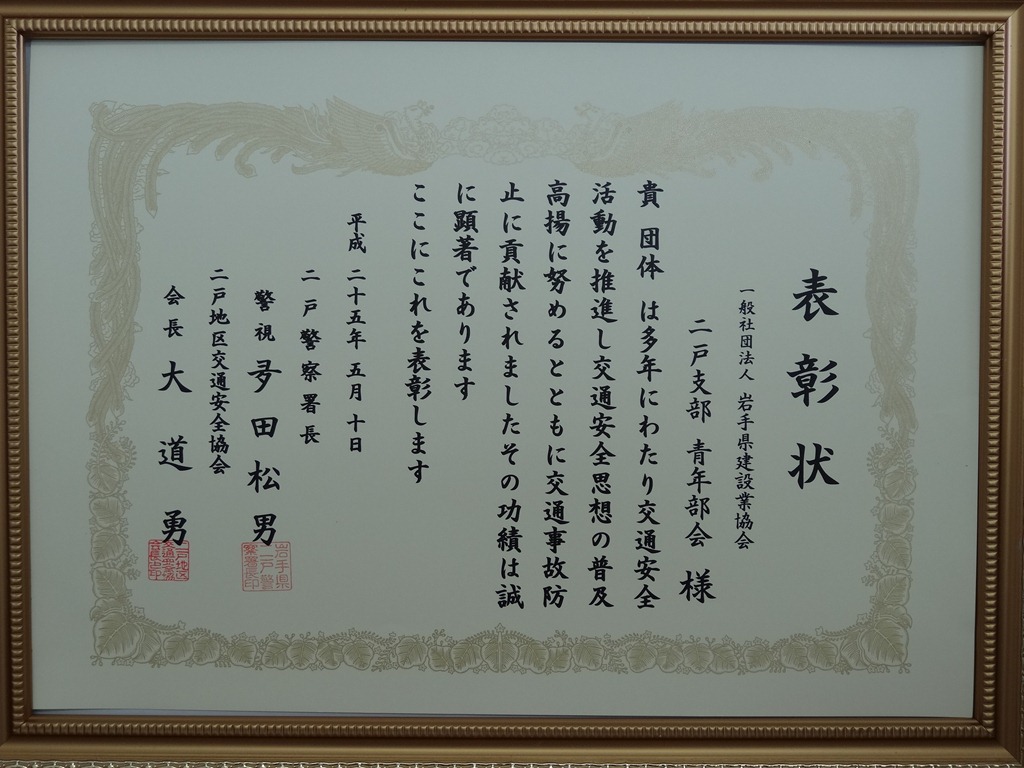 表彰状
一般社団法人 岩手県建設業協会
二戸支部 青年部会 様
貴団体は多年にわたり交通安全
活動を推進し交通安全思想の普及
高揚に努めるとともに交通事故防
止に貢献されましたその功績は誠
に顕著であります
ここにこれを表彰します
平成二十五年五月十日
二戸警察署長
警視 多田松男
二戸地区交通安全協会
会長 大道勇
岩手県二戸警察署長印